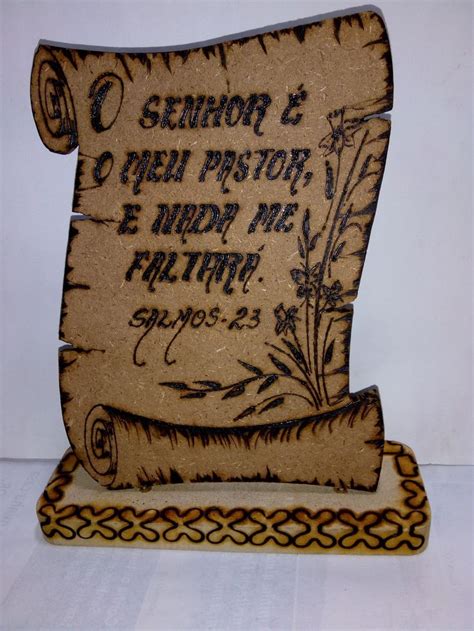 O SENHOR É
O MEU PASTOR,
E NADA ME
FALTARÁ.
SALMOS-23